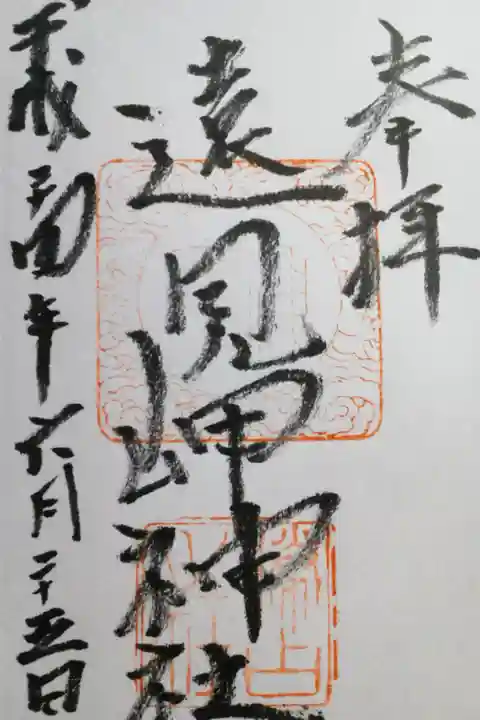 奉拝
遠見岬神社
平成二十四年六月二十五日